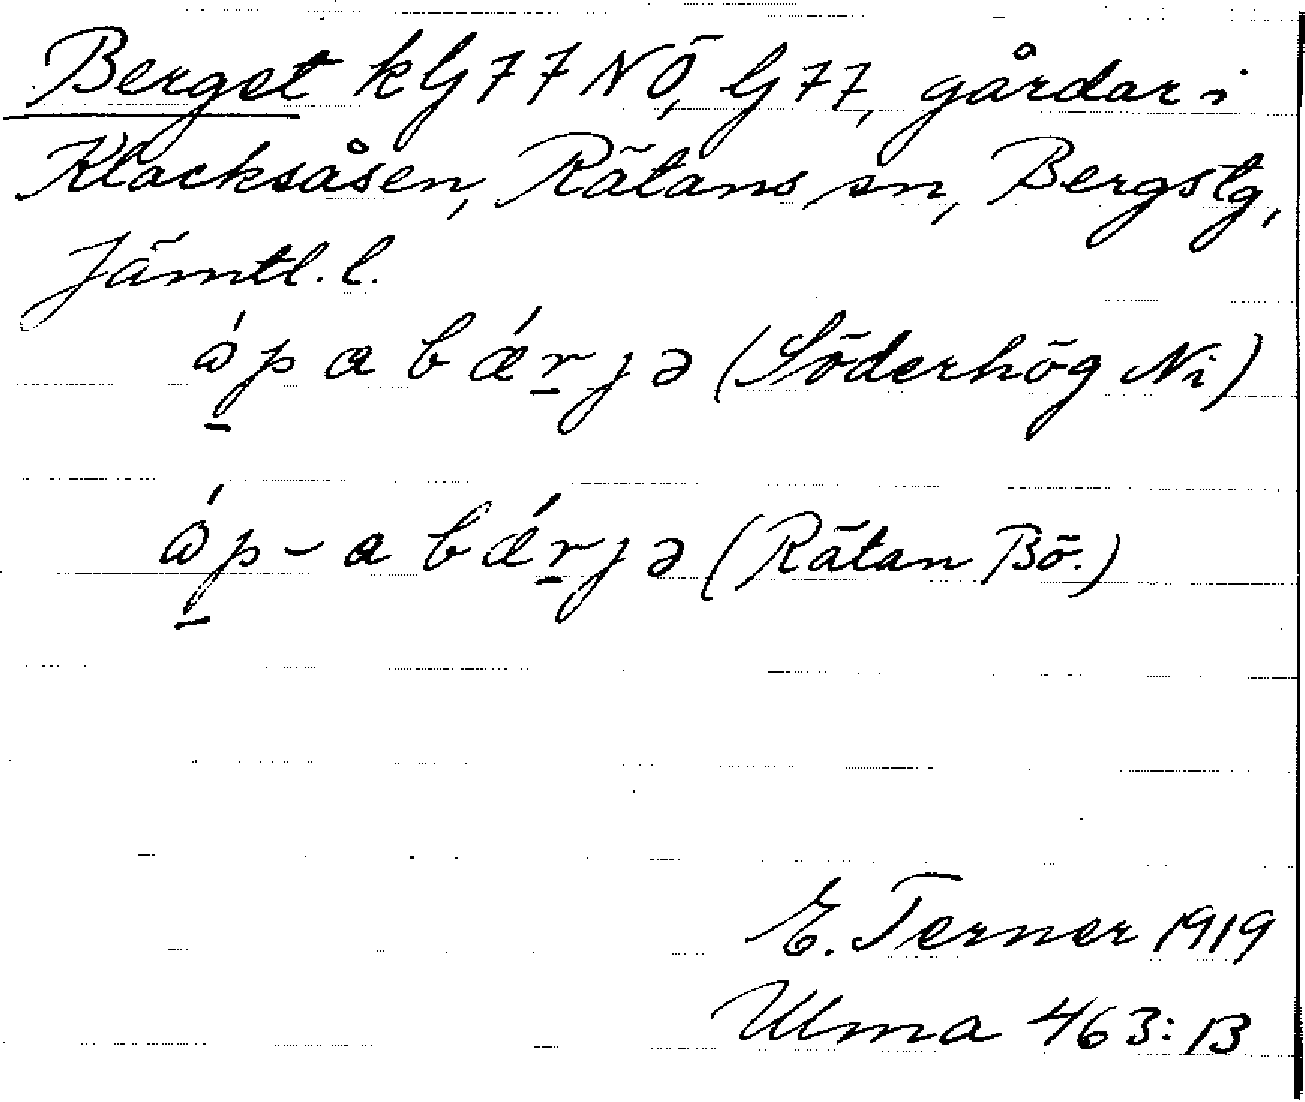 Berget kG77NÖ, G77, gårdar i
Klacksåsen, Rätans sn, Bergs tg,
Jämtl. l.
ápa bǽrjə (Söderhög Ni)
áp-a bǽrjə (Rätan Bö.)
E. Terner 1919
Ulma 463:13